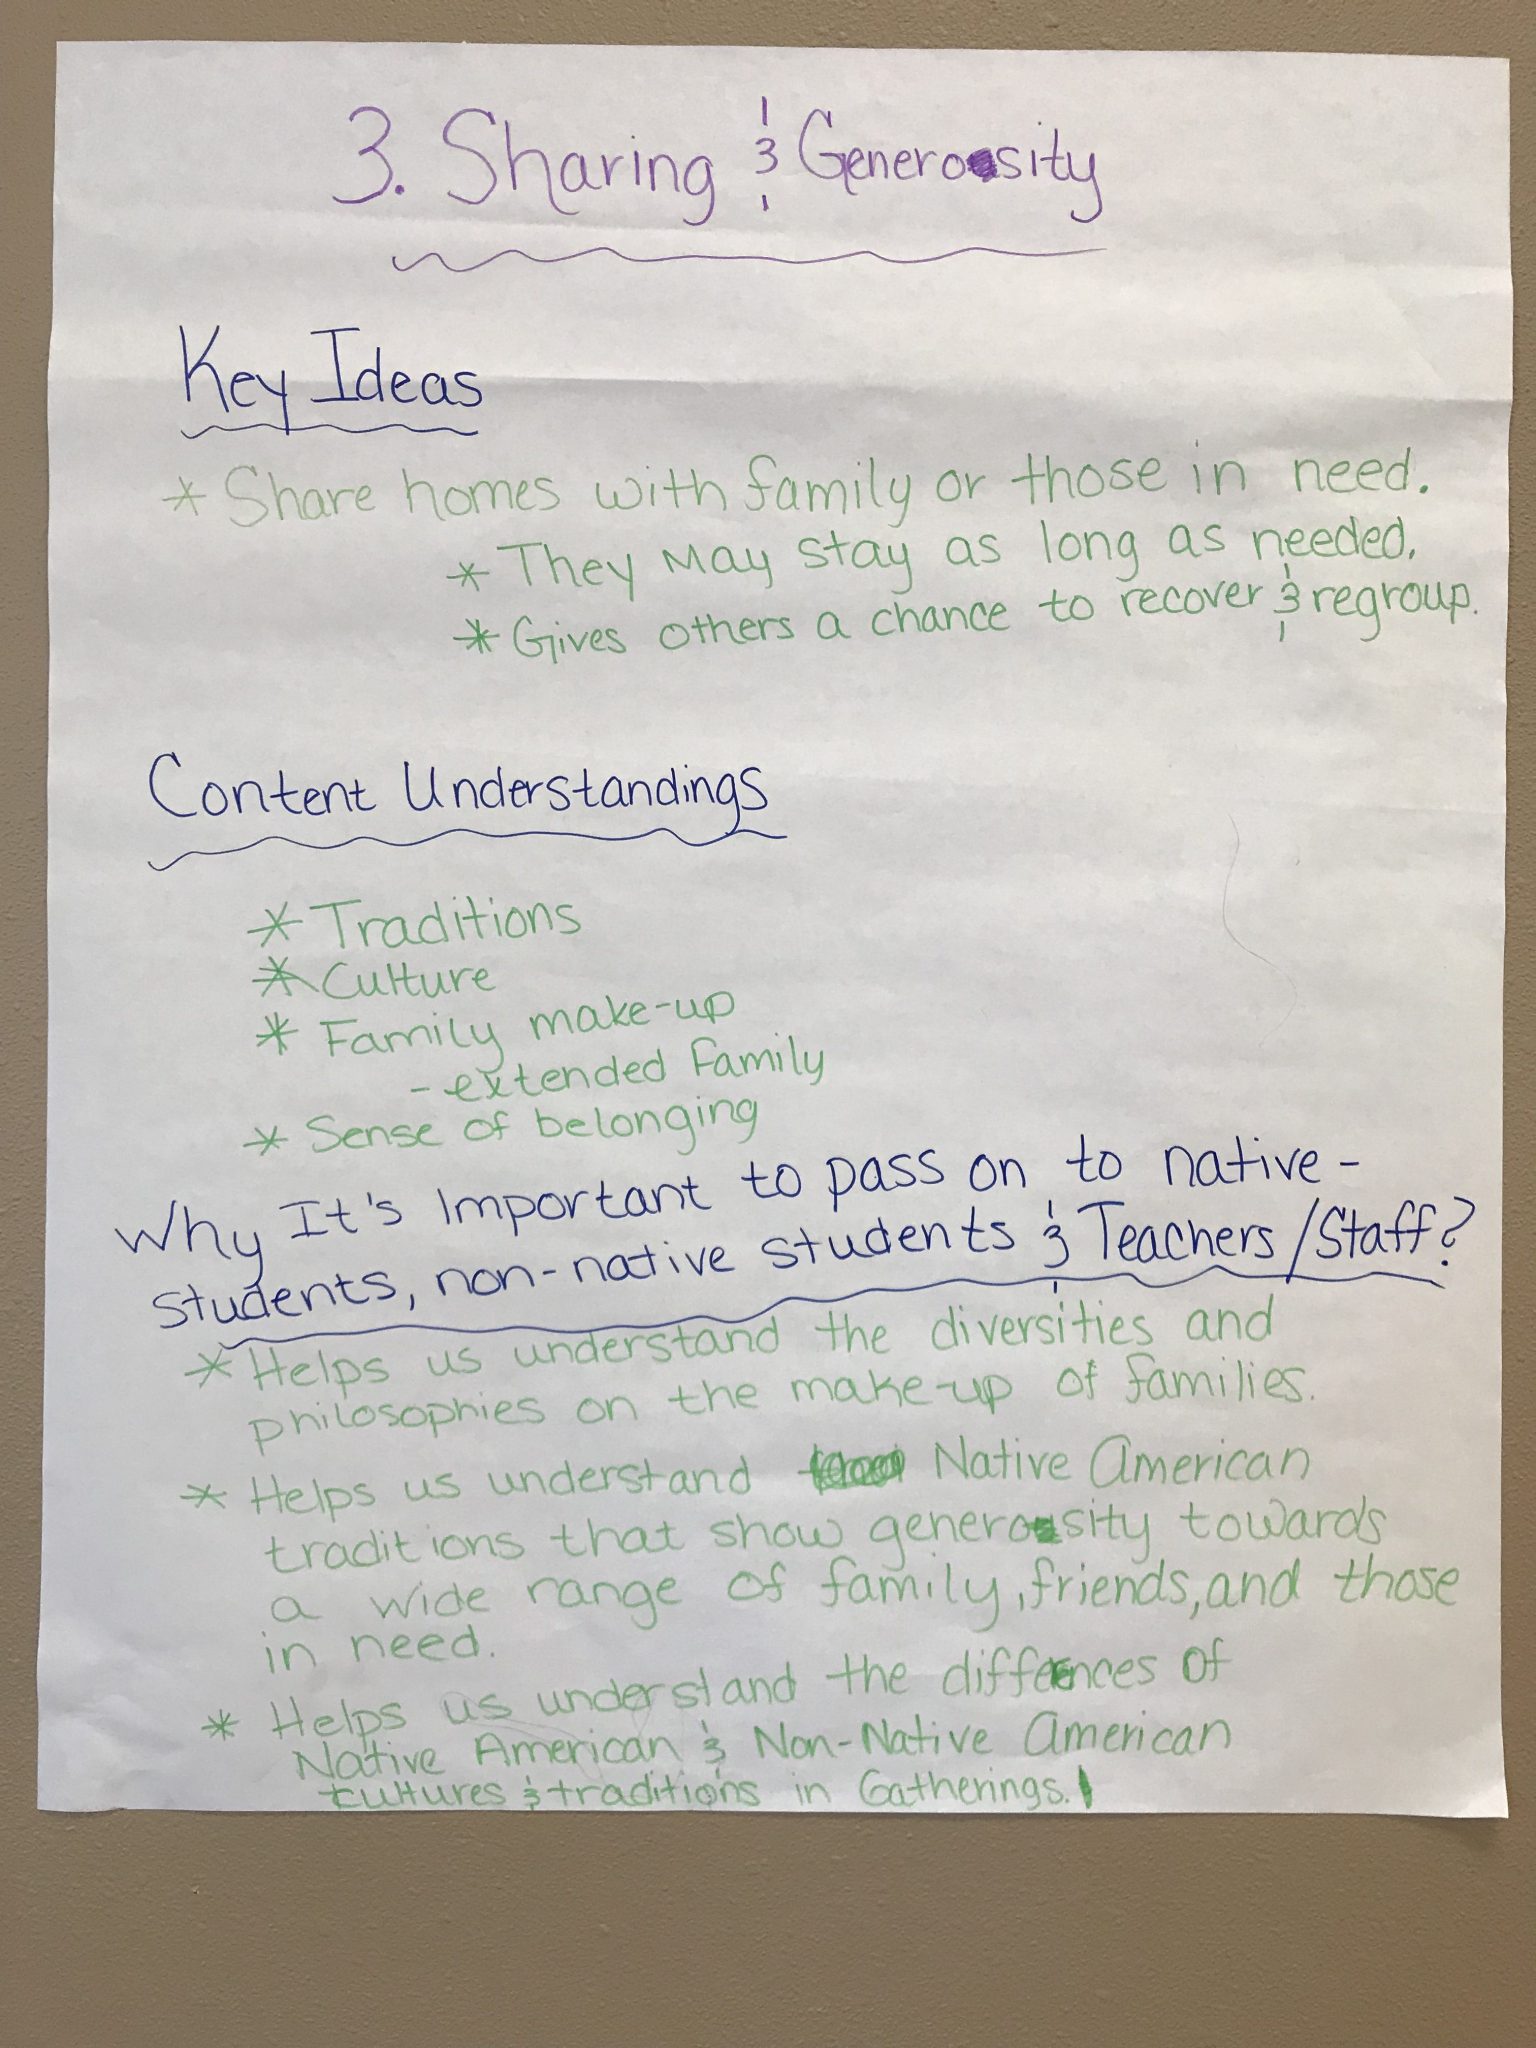 3. Sharing & Generosity
Key Ideas
* Share homes with family or those in need.
* They May stay as long as needed.
* Gives others a chance to recover & regroup.
Content Understandings
* Traditions
* Culture
* Family make-up
- extended family
* Sense of belonging
Why It's important to pass on to native-
students, non-native students & Teachers/Staff?
* Helps us understand the diversities and
philosophies on the make-up of families.
* Helps us understand Native American
traditions that show generosity towards
a wide range of family, friends, and those
in need.
* Helps us understand the differences of
Native American & Non-Native American
cultures & traditions in Gatherings.